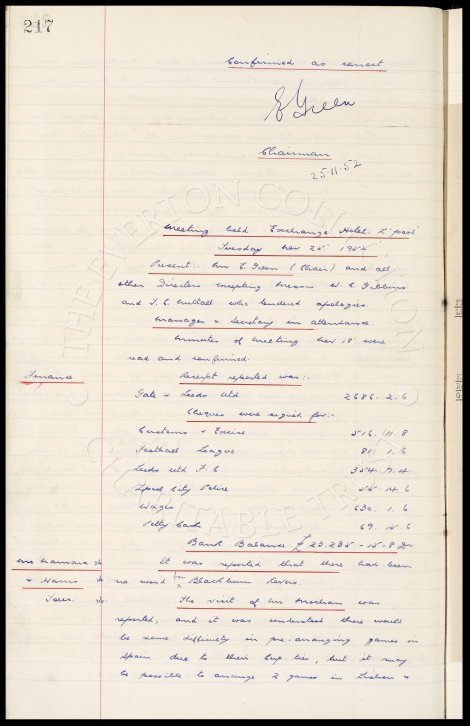 217
Confirmed as correct
E Green
Chairman
25.11.52
Meeting held Exchange Hotel. L'pool
Tuesday Nov 25th 1952
Present:- Mr E. Green (Chair) and all
other Directors excepting Messrs W. C. Gibbins
and T. C. Nuttall who tendered apologies.
Manager & Secretary in attendance.
Minutes of meeting Nov 18th were
read and confirmed.
Finance
Receipt reported was:-
Gate v Leeds Utd 2686. 2. 6
Cheques were signed for:-
Customs & Excise 516. 11. 8
Football League 81. 1. 6
Leeds Utd F.C. 354. 2. 4
L'pool City Police 55. 14. 6
Wages 630. 1. 6
Petty Cash 69. 15. 6
Bank Balance £23,235 - 15 - 8 Dr
It was reported that there had been
& Harris no word from Blackburn Rovers.
Tour. The visit of Mr was
reported, and it was understood there would
be some difficulty in pre-arranging games in
Spain due to their Cup ties, but it may
be possible to arrange 2 games in Lisbon &
THE EVERTON COLLECTION
CHARITABLE TRUST